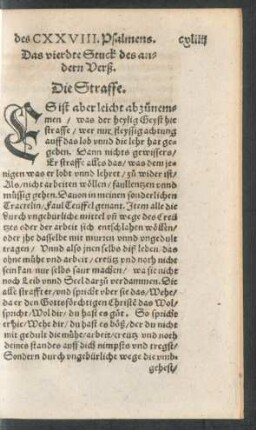 des CXXVIII. Psalmens. cxliiij
Das vierdte Stuck des an-
dern Verß.
Die Straffe.
ES ist aber leicht abzůnem-
men / was der heylig Geyst hie
straffe / wer nur fleyssig achtung
auff das lob vnnd die lehr hat ge-
geben. Dann nichts gewissers /
Er straffe alles das / was dem je-
nigen was er lobt vnnd lehret / zů wider ist /
Als / nicht arbeiten wöllen / faullentzen vnnd
müssig gehen. Dauon in meinen sonderlichen
Tractetlin, Faul Teuffel genant. Item alle die
durch vngebürliche mittel vñ wege des Creütz
zes oder der arbeit sich entschlahen wöllen /
oder jhe dasselbe mit murren vnnd vngedult
tragen / Vnnd also jnen selbs diß leben, das
ohne mühe vnd arbeit / creütz vnd noch nicht
sein kan / nur selbs saur machen / wa sie nicht
noch Leib vnnd Seel darzů verdammen. Die
alle straffet er / vnd spricht vber sie das / Wehe /
da er den Gottsförchtigen Christē das Wol /
spricht / Wol dir / du hast es gůt. So spricht
er hie / Wehe dir / du hast es böß, der du nicht
mit gedult die mühe / arbeit / creütz vnd noch
deines standes auff dich nimpst vnd tregst /
Sondern durch vngebürliche wege die vmb-
gehest /